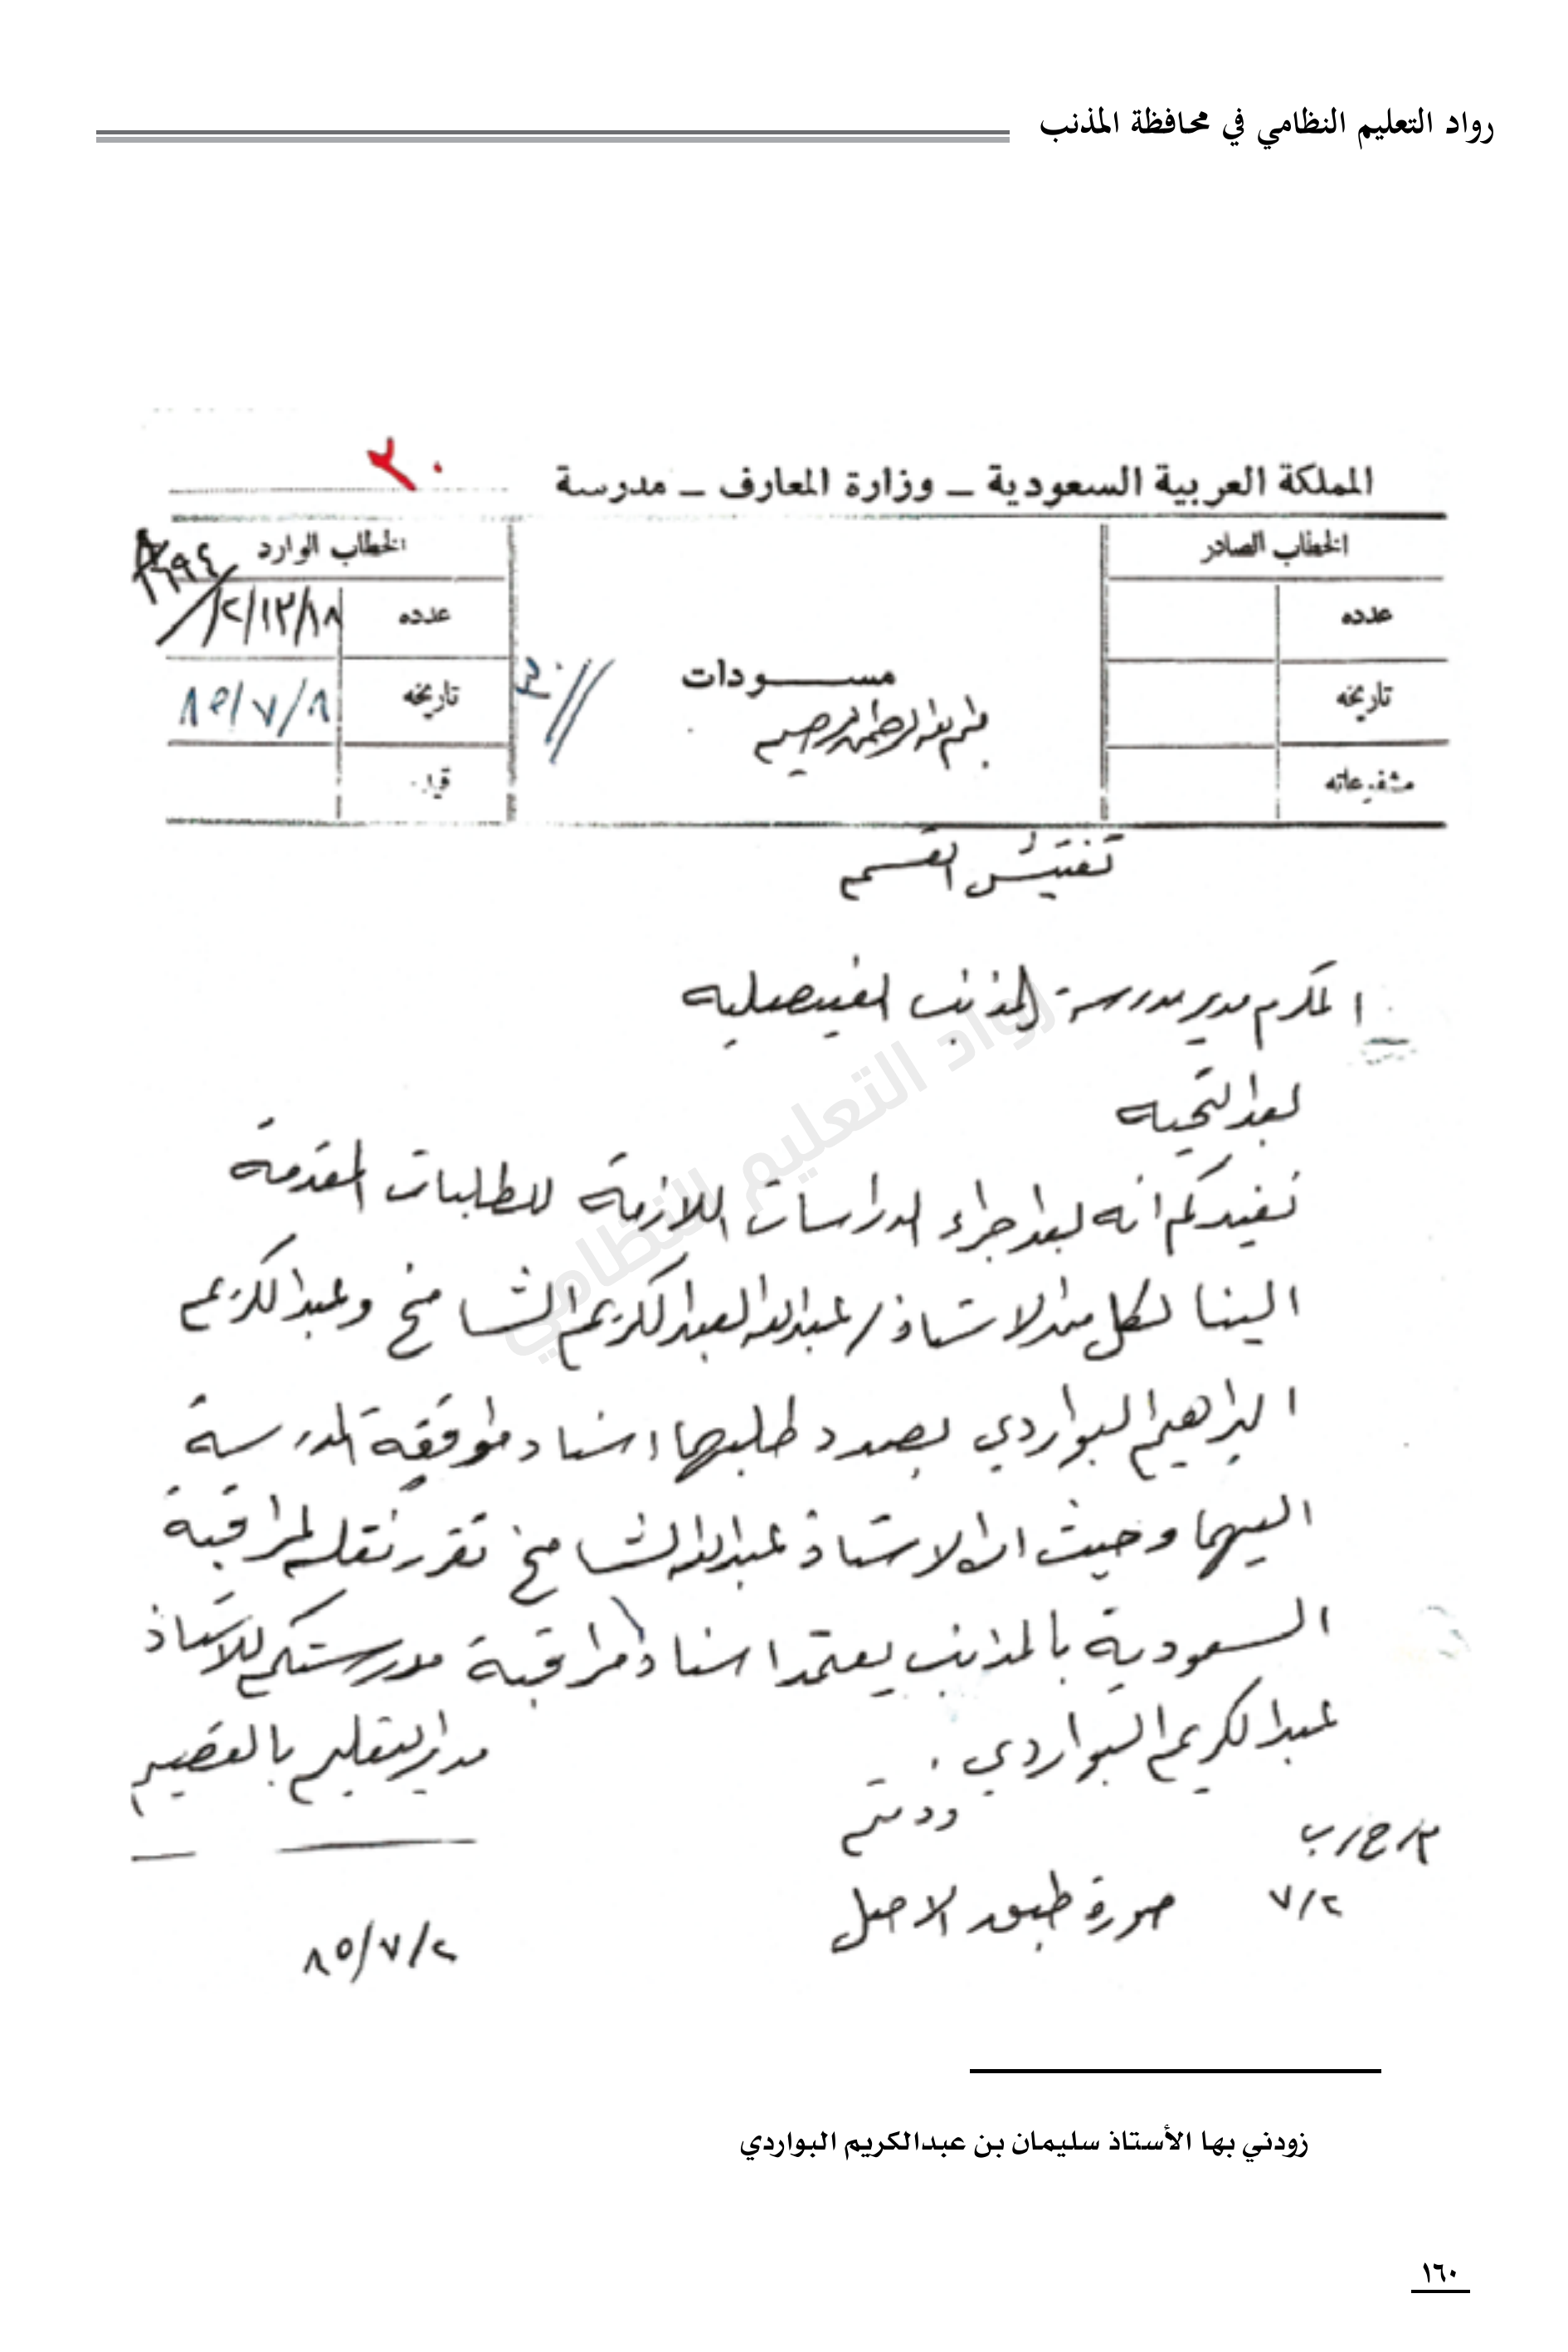 رواد التعليم النظامي في محافظة المذنب
٢٠
المملكة العربية السعودية ــ وزارة المعارف ــ مدرسة
الخطاب الصادر
عدده
تاريخه
مشفوعاته
مســـودات
بسم الله الرحمن الرحيم
الخطاب الوارد
عدده
تاريخه ٨٥/٧/٨
تفتيش القسم
المكرم مدير مدرسة المذنب الفيصليه
بعد التحيه
نفيدكم انه بعد اجراء الدراسات اللازمة للطلبات المقدمة
الينا لكل من الاستاذ / عبدالله العبدالكريم الشامخ وعبدالكريم
البراهيم البواردي بصدد طلبهما اسناد موافقة المدرسة
اليهما وحيث ان الاستاذ عبدالله الشامخ تقرر نقله لمراقبة
السعودية بالمذنب يعتمد اسناد مراقبة مدرستكم للاستاذ
عبدالكريم البواردي .
ودمتم
مدير التعليم بالقصيم
م/ح/ب
٧/٢
صورة طبق الاصل
٨٥/٧/٢
رواد التعليم النظامي
زودني بها الأستاذ سليمان بن عبدالكريم البواردي
١٦٠